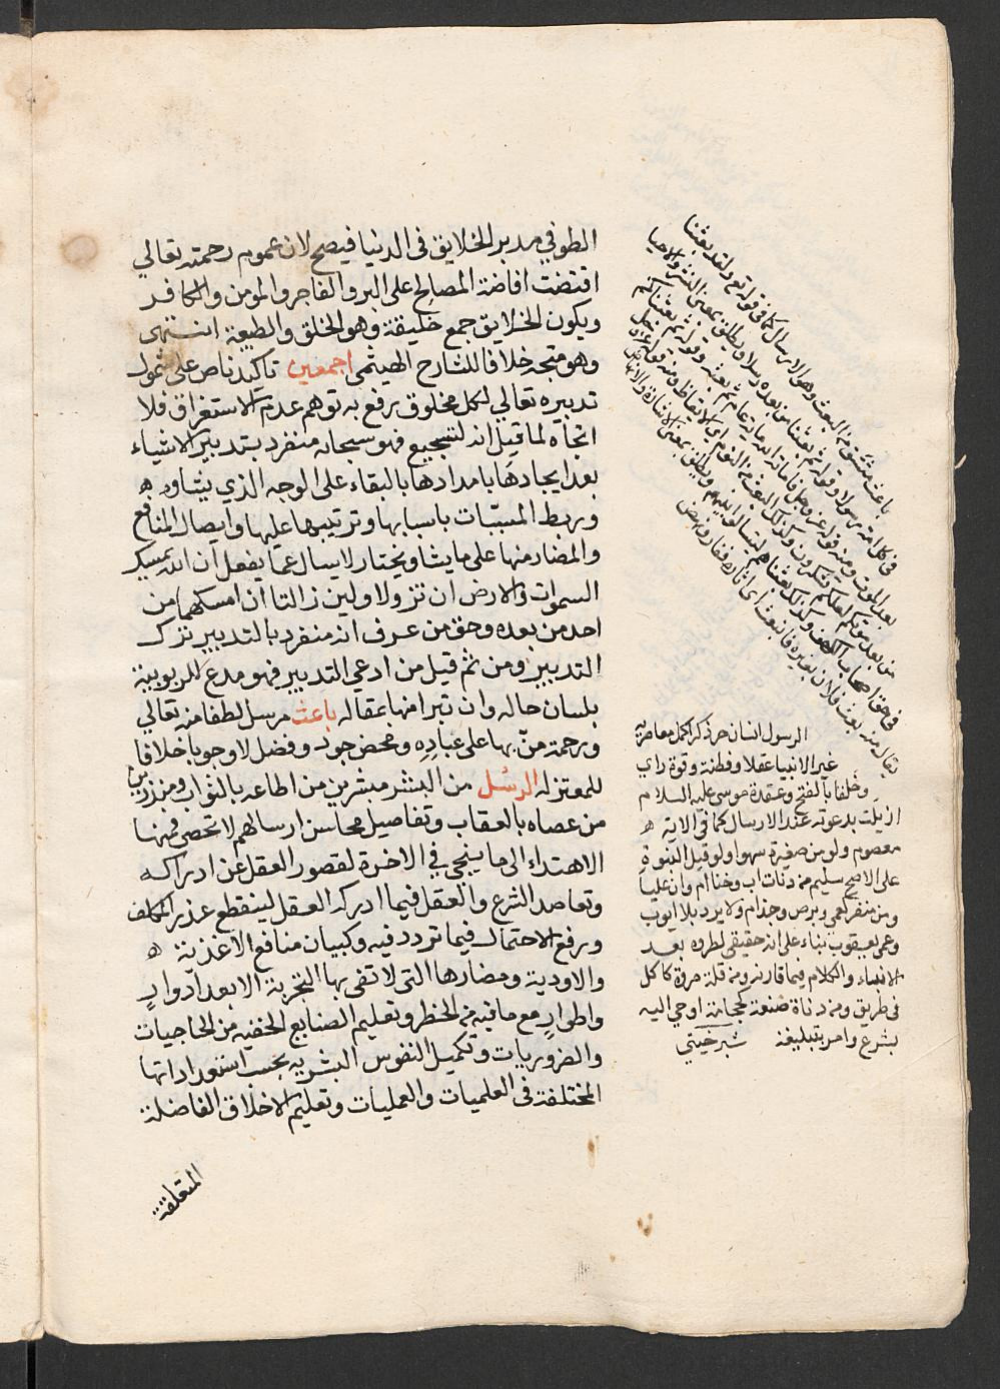 الطوفي مدبر الخلايق في الدنيا فيصح لان عموم رحمته تعالي
اقتضت افاضة المصالح على البر والفاجر والمومن والكافر
ويكون الخلايق جمع خليقة وهو الخلق والطبيعة انتهى
وهو متجه خلافا للشارح الهيثمي اجمعين تاكيد ناص على شمول
تدبيره تعالي لكل مخلوق يرفع به توهم عدم الاستغراق فلا
اتجاه لما قيل انه لتسجيع فهو سبحانه منفرد بتدبير الاشياء
بعد ايجادها بامدادها بالبقاء على الوجه الذي يشاوه
وربط المسببات باسبابها وترتيبها عليها وايصال المنافع
والمضار منها على ما يشا ويختار لا يسال عما يفعل ان الله يمسك
السموات والارض ان تزولا ولين زالتا ان امسكهما من
احد من بعده وحق من عرف انه منفرد بالتدبير ترك
التدبير ومن ثم قيل من ادعي التدبير فهو مدع للربوبية
بلسان حاله وان تبرا منها عقاله باعث مرسل لطفا منه تعالي
ورحمة منّ بها على عباده ومحض جود وفضل لا وجوبا خلافا
للمعتزله الرسل من البشر مبشرين من اطاعه بالثواب ومنذرين
من عصاه بالعقاب وتفاصيل محاسن ارسالهم لا تحصى فمنها
الاهتداء الى ما ينجي في الاخرة لقصور العقل عن ادراكه
وتعاضد الشرع والعقل فيما ادركه العقل لينقطع عذر المكلف
ورفع الاحتمال فيما تردد فيه وكبيان منافع الاغذية
والاودية ومضارها التى لا تفى بها التجربة الا بعد ادوار
واطوار مع ما فيه من الخطر وتعليم الصنايع الخفيه من الحاجيات
والضروريات وتكميل النفوس البشريه بحسب استعداداتها
المختلفة في العلميات والعمليات وتعليم الاخلاق الفاضلة
المتعلقة
باعث مشتق من البعث وهو الارسال كما في قوله تع ولقد بعثنا
في كل امة رسولا وقوله ثم بعثنا من بعده رسلا ويطلق بمعنى النشر والاحيا
بعد الموت ومنه قوله عز وجل فاماته الله ماية عام ثم بعثه وقوله ثم بعثناكم
من بعد موتكم لعلكم تشكرون وكذلك البعث من النوم اي الايقاظ ومنه قوله عز وجل
في حق اصحاب الكهف وكذلك بعثناهم ليتسالوا بينهم ويطلق بمعنى الاثارة والانهاض
يقال منه بعث فلان بعيره فانبعث اي اثاره فثار ونهض
الرسول انسان حر ذكر اكمل معاصريه
غير الانبيا عقلا وفطنة وقوة راي
وخلقا بالفتح وعقدة موسى عليه السلام
ازيلت بدعوته عند الارسال كما في الاية
معصوم ولو من صغيرة سهوا ولو قبل النبوة
على الاصح سليم من دنات اب وخنا ام وان عليا
ومن منفر كعمي وبرص وجذام ولا يرد بلا ايوب
وعمي يعقوب بناء على انه حقيقي لطروه بعد
الانبياء والكلام فيما قارنه ومن قلة مروة كاكل
في طريق ومن دناة صنعة كحجامة اوحي اليه
بشرع وامر بتبليغه شبرخيتي